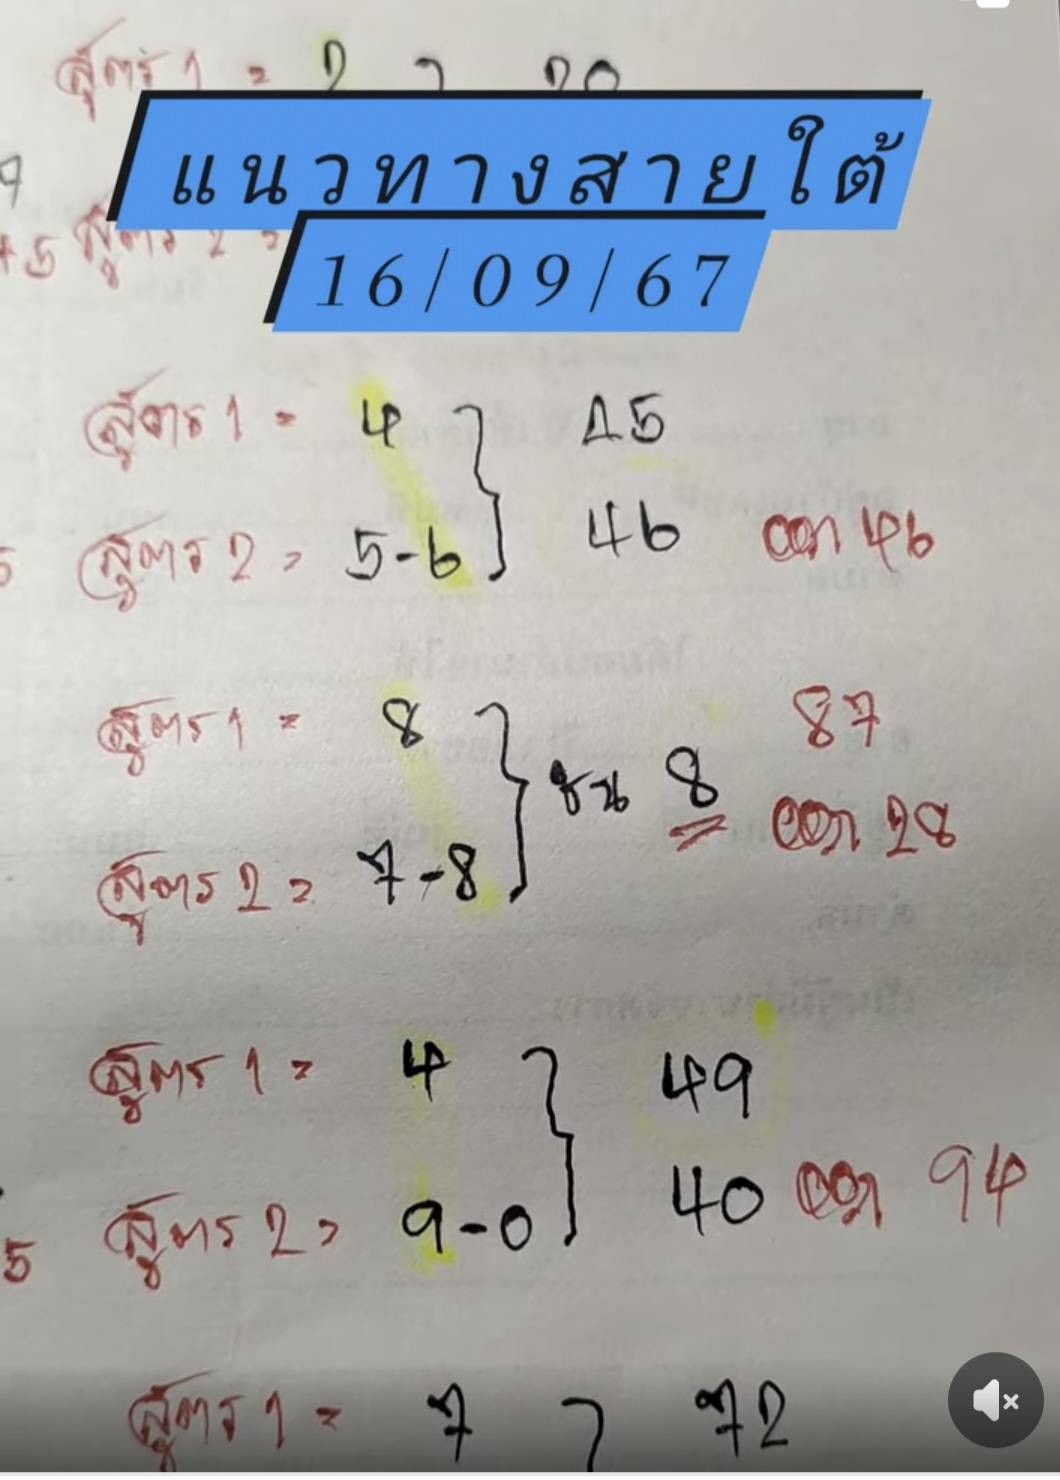 สูตร 1 = 2 20
แนวทางสายใต้
9
+5 สูตร 2 =
16/09/67
สูตร 1 = 4 45
5 สูตร 2 = 5-6 46 ออก 46
สูตร 1 = 8 87
ชน 8
สูตร 2 = 7-8 ออก 28
สูตร 1 = 4 49
5 สูตร 2 = 9-0 40 ออก 94
สูตร 1 = 7 72